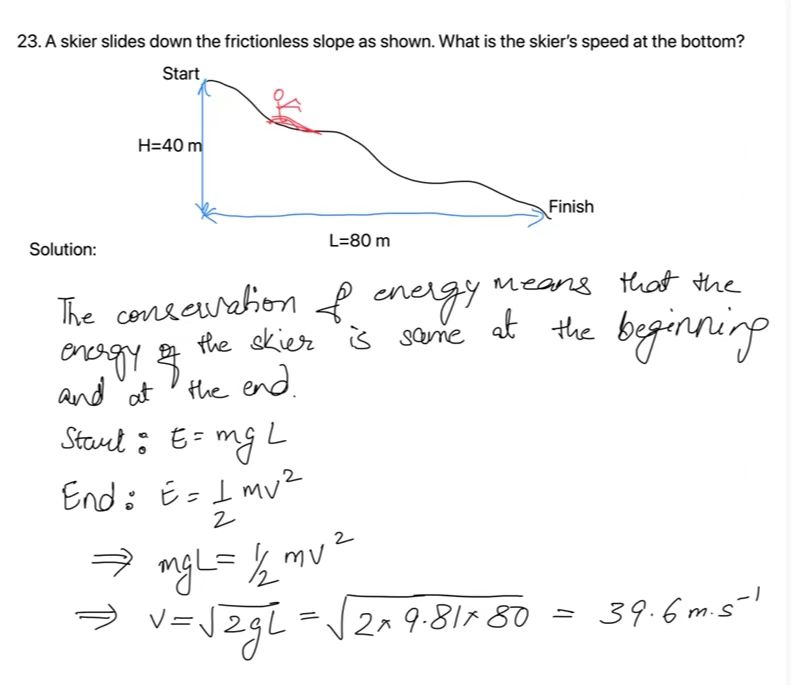 23. A skier slides down the frictionless slope as shown. What is the skier's speed at the bottom?
Start
H=40 m
Finish
L=80 m
Solution:
The conservation of energy means that the
energy of the skier is same at the beginning
and at the end.
Start : E = mgL
End : E = 1/2 mv²
⇒ mgL = 1/2 mv²
⇒ v = √2gL = √2 × 9.81 × 80 = 39.6 m.s⁻¹